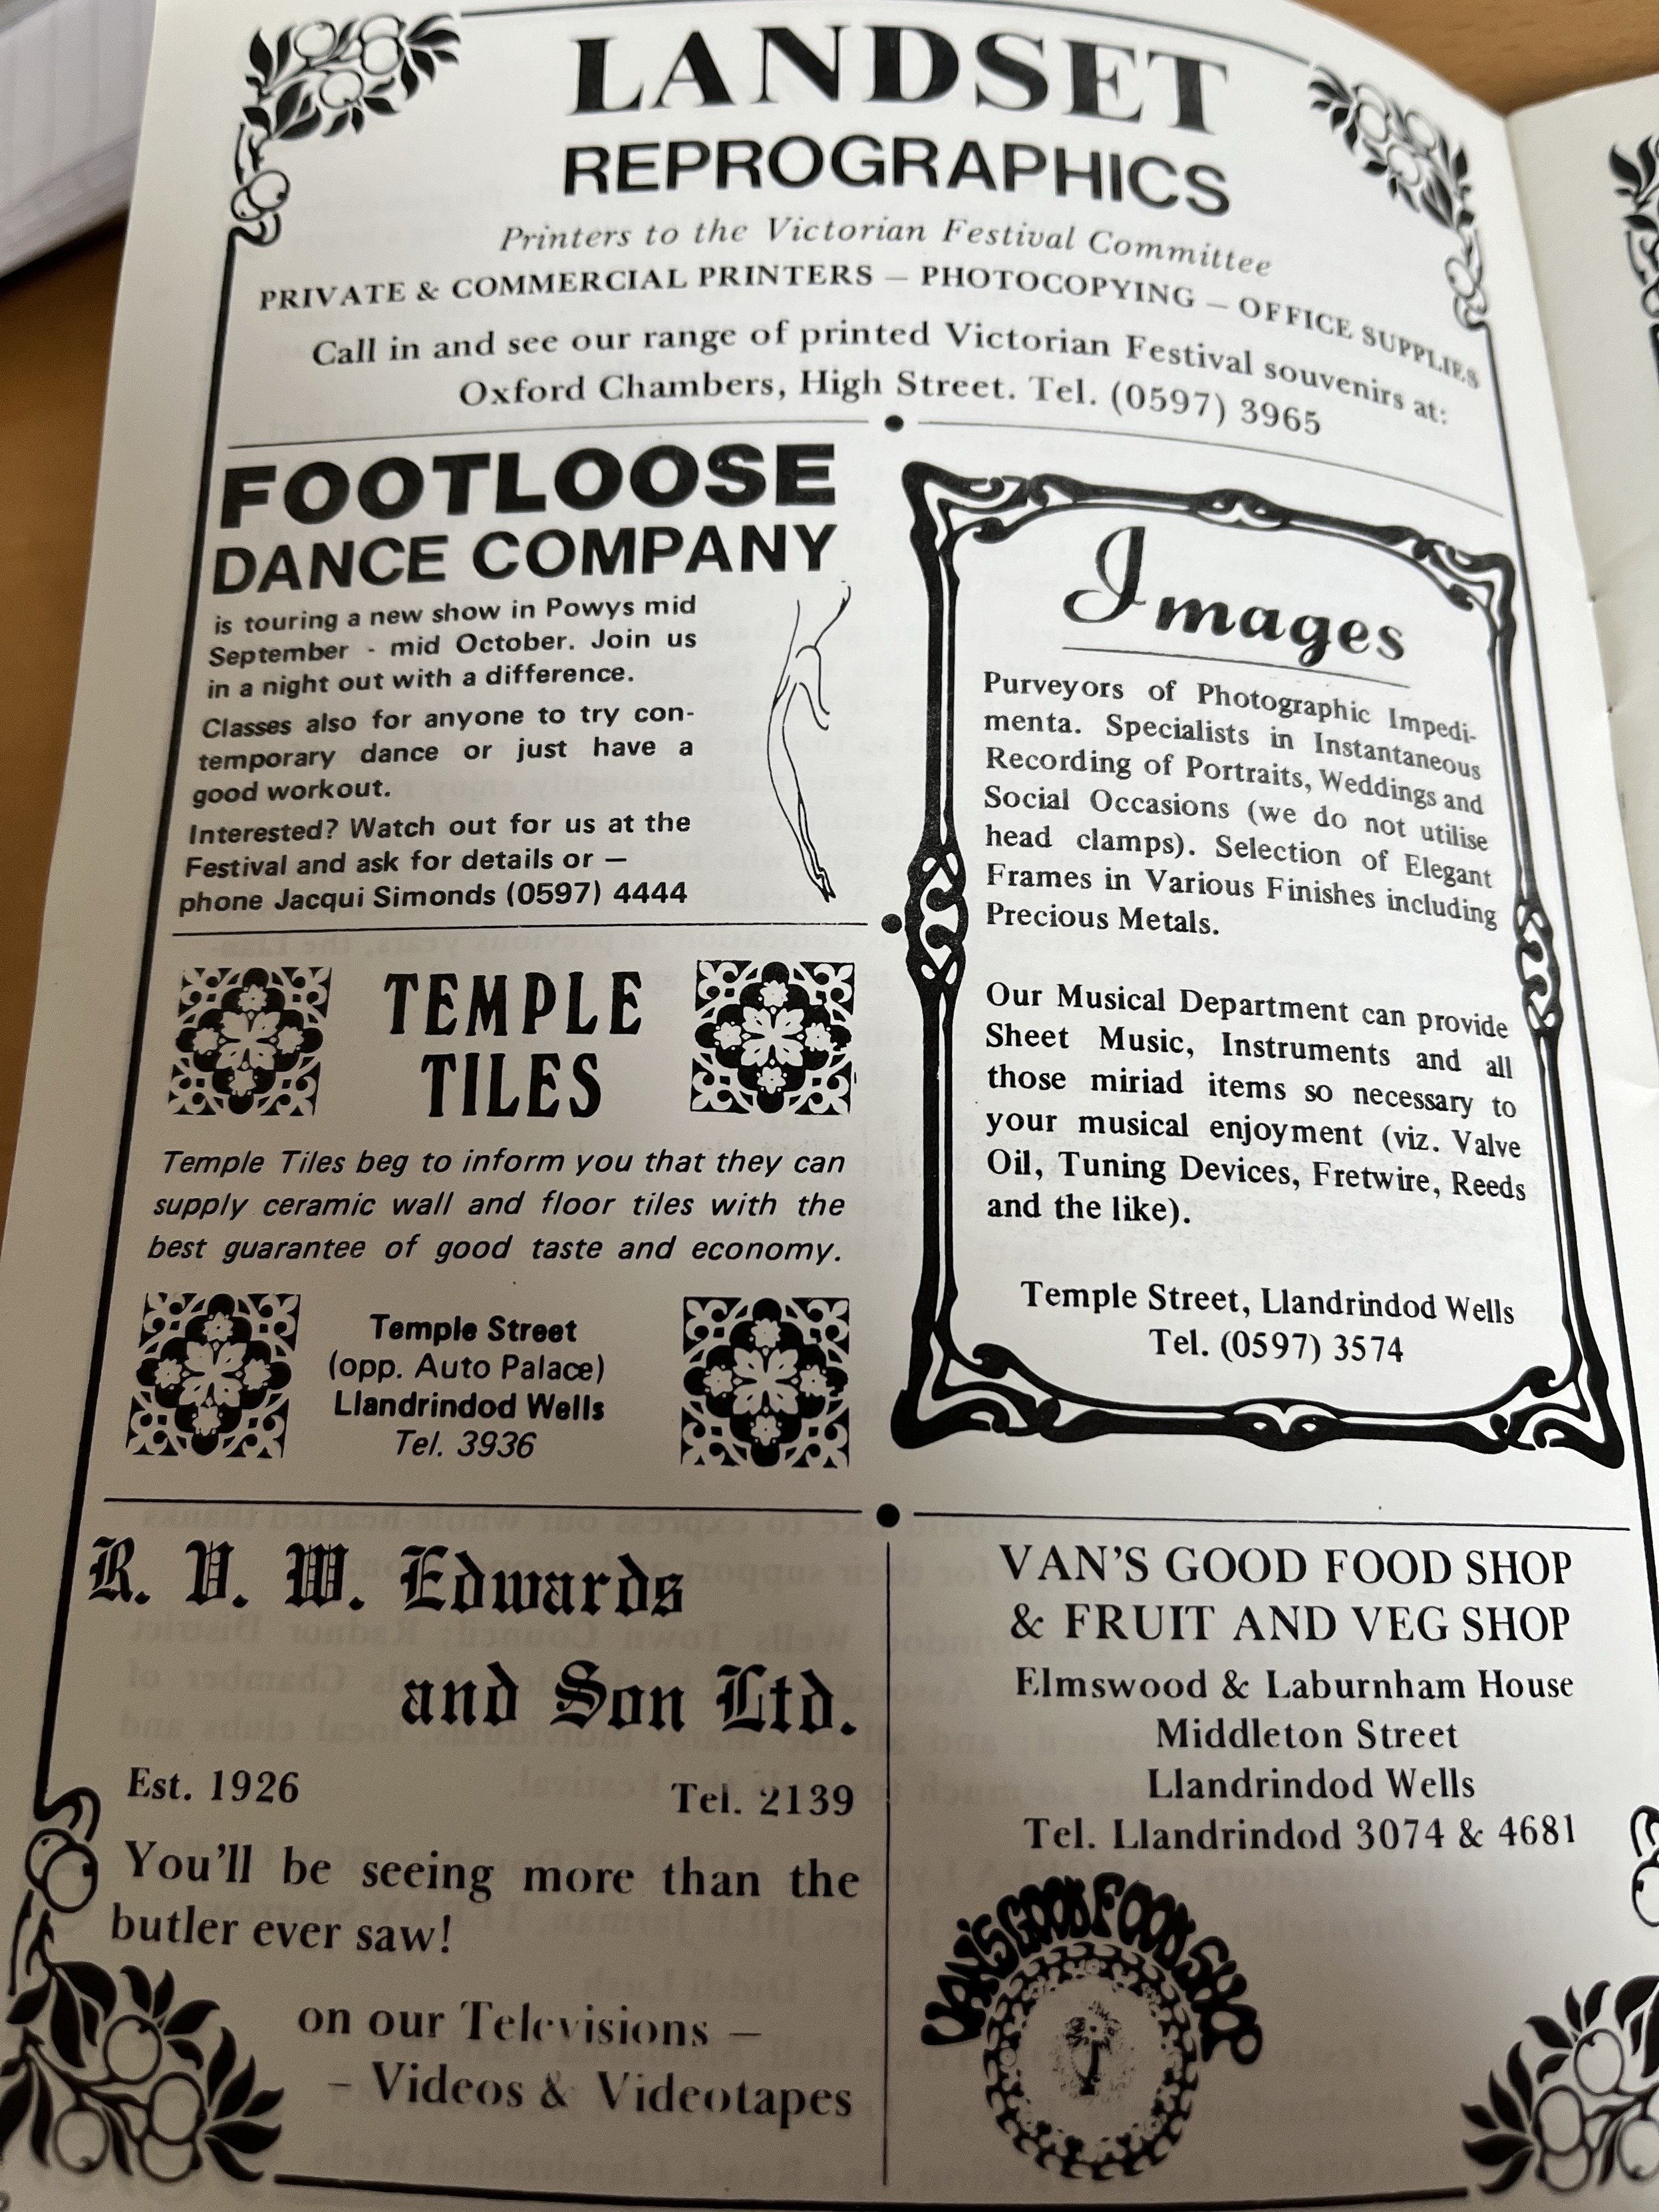 LANDSET
REPROGRAPHICS
Printers to the Victorian Festival Committee
PRIVATE & COMMERCIAL PRINTERS — PHOTOCOPYING — OFFICE SUPPLIES
Call in and see our range of printed Victorian Festival souvenirs at:
Oxford Chambers, High Street. Tel. (0597) 3965
FOOTLOOSE
DANCE COMPANY
is touring a new show in Powys mid
September - mid October. Join us
in a night out with a difference.
Classes also for anyone to try con-
temporary dance or just have a
good workout.
Interested? Watch out for us at the
Festival and ask for details or —
phone Jacqui Simonds (0597) 4444
TEMPLE
TILES
Temple Tiles beg to inform you that they can
supply ceramic wall and floor tiles with the
best guarantee of good taste and economy.
Temple Street
(opp. Auto Palace)
Llandrindod Wells
Tel. 3936
Images
Purveyors of Photographic Impedi-
menta. Specialists in Instantaneous
Recording of Portraits, Weddings and
Social Occasions (we do not utilise
head clamps). Selection of Elegant
Frames in Various Finishes including
Precious Metals.
Our Musical Department can provide
Sheet Music, Instruments and all
those miriad items so necessary to
your musical enjoyment (viz. Valve
Oil, Tuning Devices, Fretwire, Reeds
and the like).
Temple Street, Llandrindod Wells
Tel. (0597) 3574
R. V. W. Edwards
and Son Ltd.
Est. 1926 Tel. 2139
You'll be seeing more than the
butler ever saw!
on our Televisions —
— Videos & Videotapes
VAN'S GOOD FOOD SHOP
& FRUIT AND VEG SHOP
Elmswood & Laburnham House
Middleton Street
Llandrindod Wells
Tel. Llandrindod 3074 & 4681
VAN'S GOOD FOOD SHOP